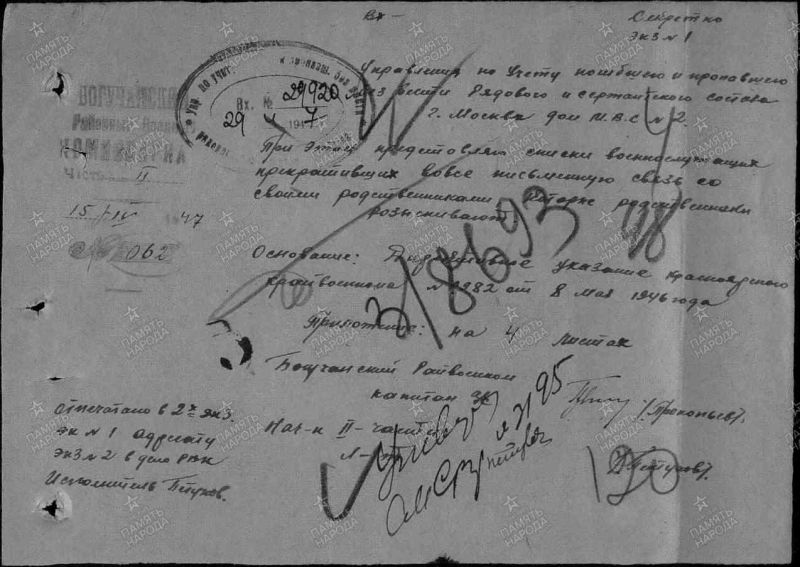 Вх-
Секретно
экз № 1
Упр. по учет. и пропавш. без вести
Вх. № 29920
29 V 1947
БОГУЧАНСКИЙ
Районный Военный
КОМИССАРИАТ
Часть II
15/IV 1947
№ 062
Управления по учету погибшего и пропавшего
без вести рядового и сержантского состава
г. Москва дом М.В.С № 2.
При этом представляю списки военнослужащих
прекративших вовсе письменную связь со
своими родственниками которые родственники
розыскивают.
Основание: Директивное указание Красноярского
крайвоенкома № 1982 от 8 мая 1946 года
Приложение: на 4 листах
Богучанский Райвоенком
капитан
/Прокопьев/.
Нач-к II-части
/Петухов/.
Отпечатано в 2х экз.
Эк № 1 адресату
Экз № 2 в дело РВК
Исполнитель Петухов.
3/8693
48
№ 3195
120
ПАМЯТЬ НАРОДА